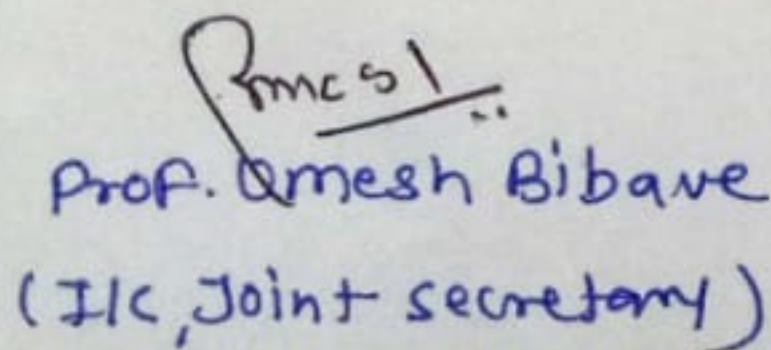 Prof. Umesh Bibave
(I/C, Joint secretary)